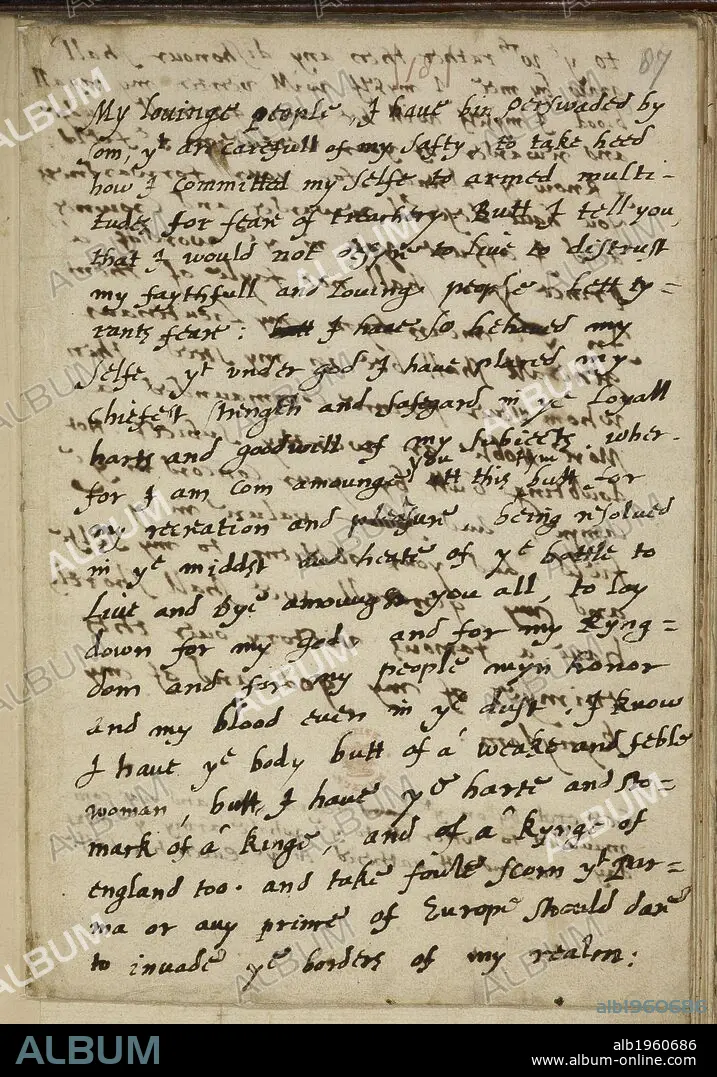 87
My louinge people, I haue bin perswaded by
som, yt are carefull of my safty to take heed
how I committed my selfe to armed multi-
tudes for fear of treachery. Butt I tell you,
that I would not desyre to liue to distrust
my faythfull and louinge people. lett ty=
rants feare: I haue so behaued my
selfe, yt vnder god I haue placed my
chiefest strength and safgard in ye Loyall
harts and goodwill of my subiects. wher-
for I am com amounge you att this but for
my recreation and pleasure being resolued
in ye middst and heate of ye battle to
Liue and Dye amoungst you all, to lay
down for my god, and for my Kyng=
dom and for my people myn honor
and my blood even in ye dust. I know
I haue ye body butt of a weake and feble
woman, butt I haue ye harte and sto-
mack of a kinge, and of a kynge of
england too. and take foule scorn yt par=
ma or any prince of Europe should dare
to invade ye borders of my realm:
ALBUM
alb1960686
ALBUM
alb1960686
www.album-online.com